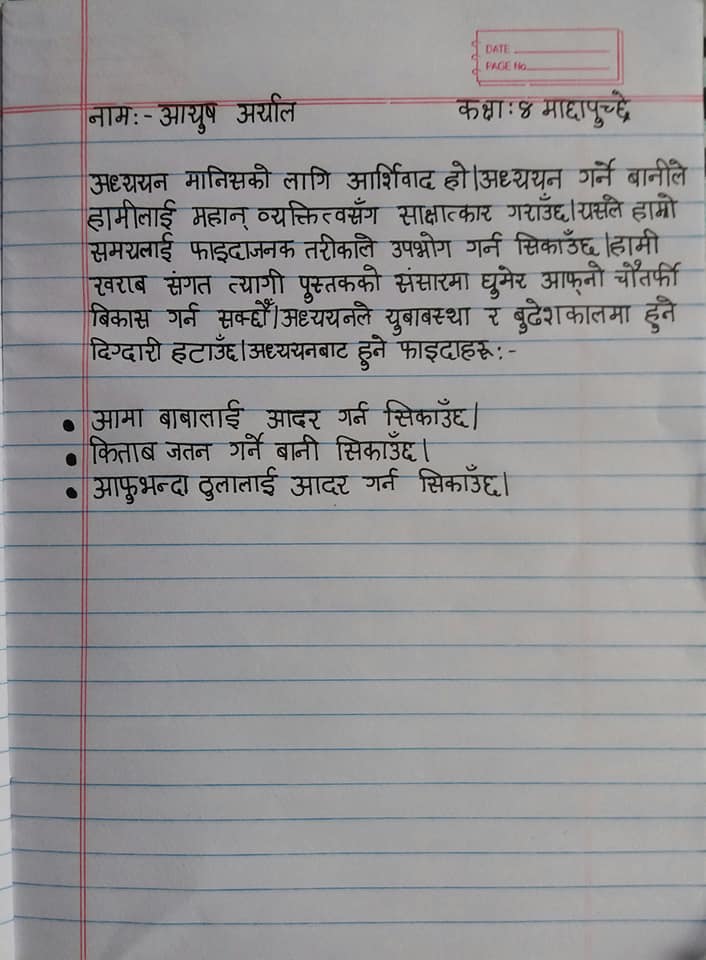 DATE
PAGE No.
नामः- आयुष अर्याल कक्षाः४ माछापुच्छ्रे
अध्ययन मानिसको लागि आर्शिवाद हो।अध्ययन गर्ने बानीले
हामीलाई महान् व्यक्तित्वसँग साक्षात्कार गराउँछ।यसले हाम्रो
समयलाई फाइदाजनक तरीकाले उपभोग गर्न सिकाउँछ।हामी
खराब संगत त्यागी पुस्तकको संसारमा घुमेर आफ्नो चौतर्फी
बिकास गर्न सक्छौँ।अध्ययनले युबाबस्था र बुढेशकालमा हुने
दिग्दारी हटाउँछ।अध्ययनबाट हुने फाइदाहरूः-
• आमा बाबालाई आदर गर्न सिकाउँछ।
• किताब जतन गर्ने बानी सिकाउँछ।
• आफुभन्दा ठुलालाई आदर गर्न सिकाउँछ।